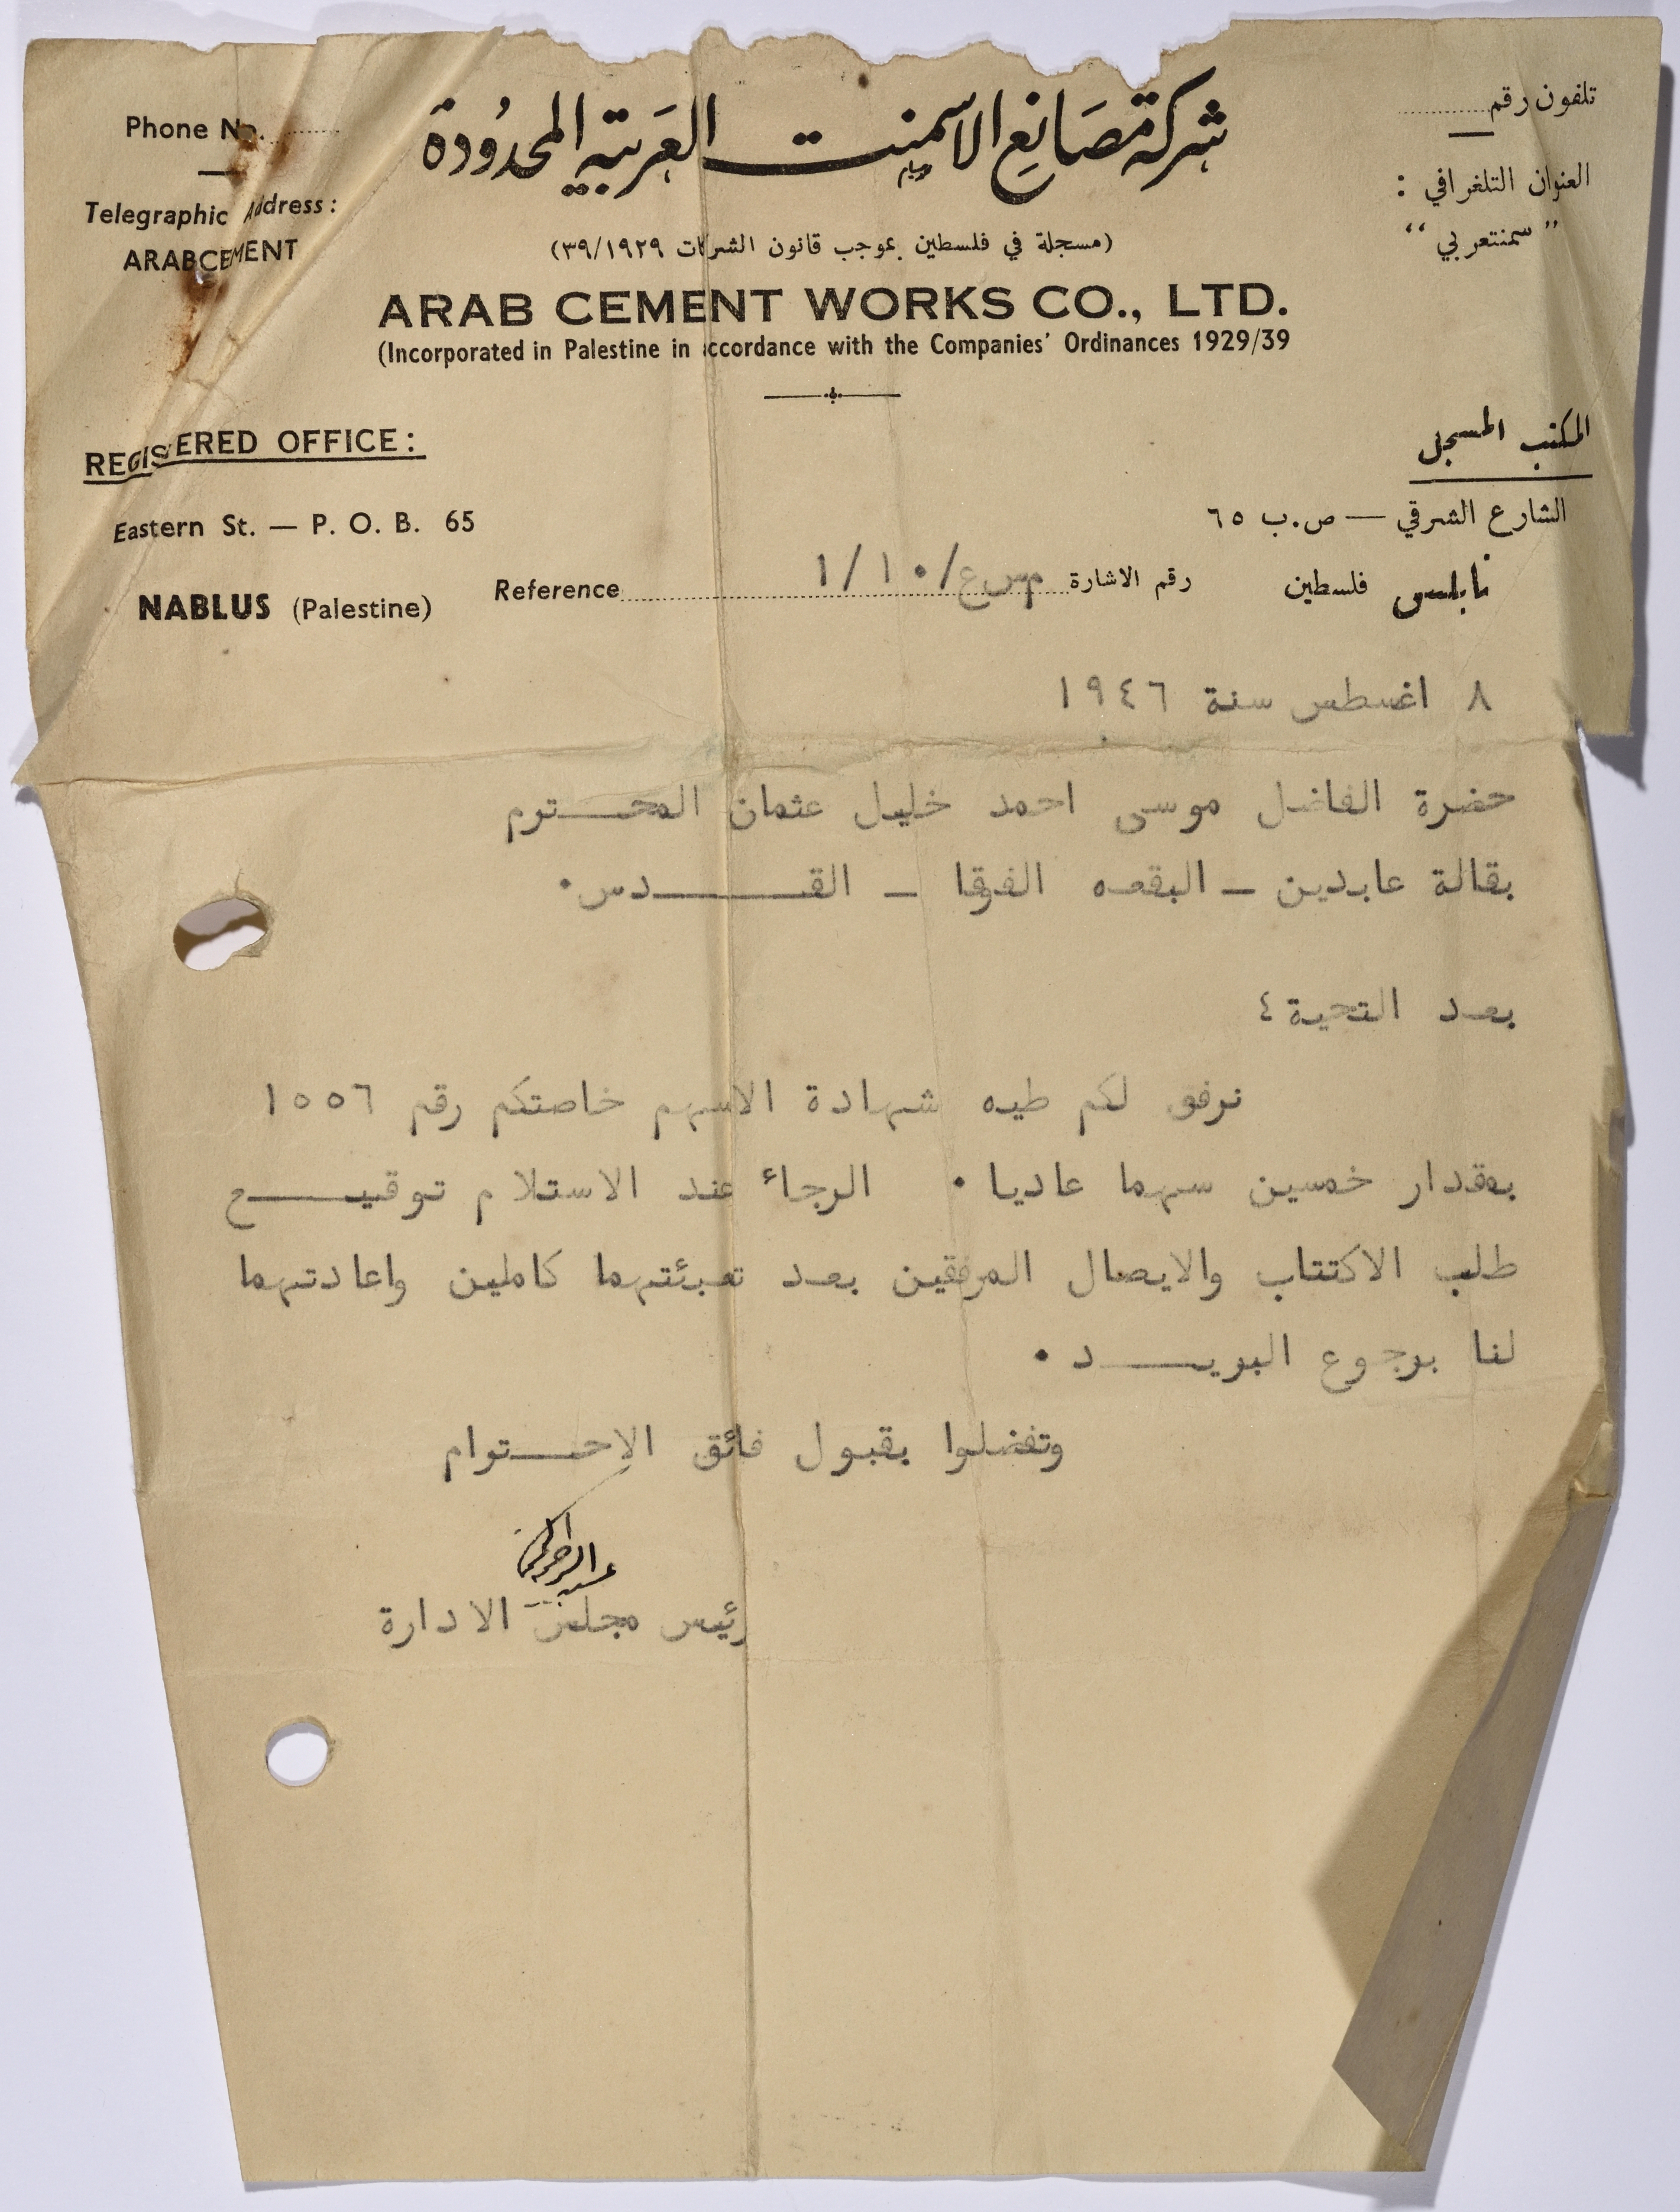 شركة مصانع الاسمنت العربية المحدودة
(مسجلة في فلسطين بموجب قانون الشركات ٣٩/١٩٢٩)
ARAB CEMENT WORKS CO., LTD.
(Incorporated in Palestine in accordance with the Companies' Ordinances 1929/39
Phone No.
Telegraphic Address:
ARABCEMENT
تلفون رقم
العنوان التلغرافي :
"سمنتعربي"
REGISTERED OFFICE:
Eastern St. — P. O. B. 65
NABLUS (Palestine)
المكتب المسجل
الشارع الشرقي — ص.ب ٦٥
نابلس فلسطين
Reference رقم الاشارة م س ع/١/١٠
٨ اغسطس سنة ١٩٤٦
حضرة الفاضل موسى احمد خليل عثمان المحــترم
بقالة عابدين ـ البقعه الفوقا ـ القــــدس.
بعد التحية ٤
نرفق لكم طيه شهادة الاسهم خاصتكم رقم ١٥٥٦
بمقدار خمسين سهما عاديا . الرجاء عند الاستلام توقيــــع
طلب الاكتتاب والايصال المرفقين بعد تعبئتهما كاملين واعادتهما
لنا برجوع البريــــد .
وتفضلوا بقبول فائق الاحــترام
رئيس مجلس الادارة